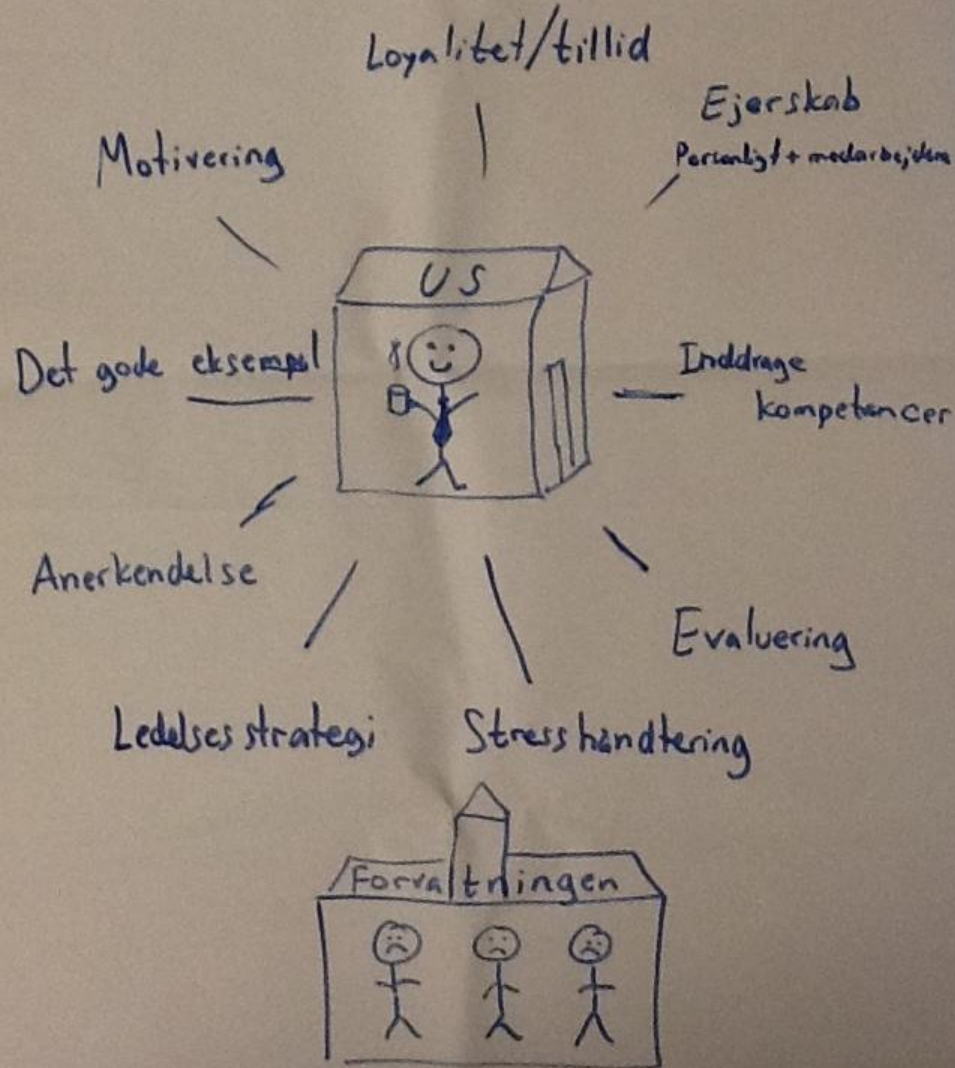 Loyalitet/tillid
Ejerskab
Personligt + medarbejdere
Motivering
US
Det gode eksempel
Inddrage
kompetencer
Anerkendelse
Evaluering
Ledelsesstrategi
Stresshåndtering
Forvaltningen